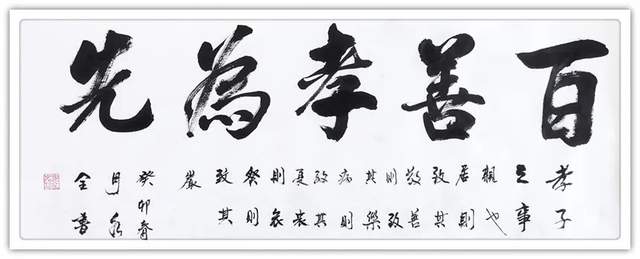 百善孝為先
孝子
之事
親也
居則
致其
敬養
則致
其樂
病則
致其
憂喪
則哀
祭則
致其
嚴
癸卯春
月永
全書